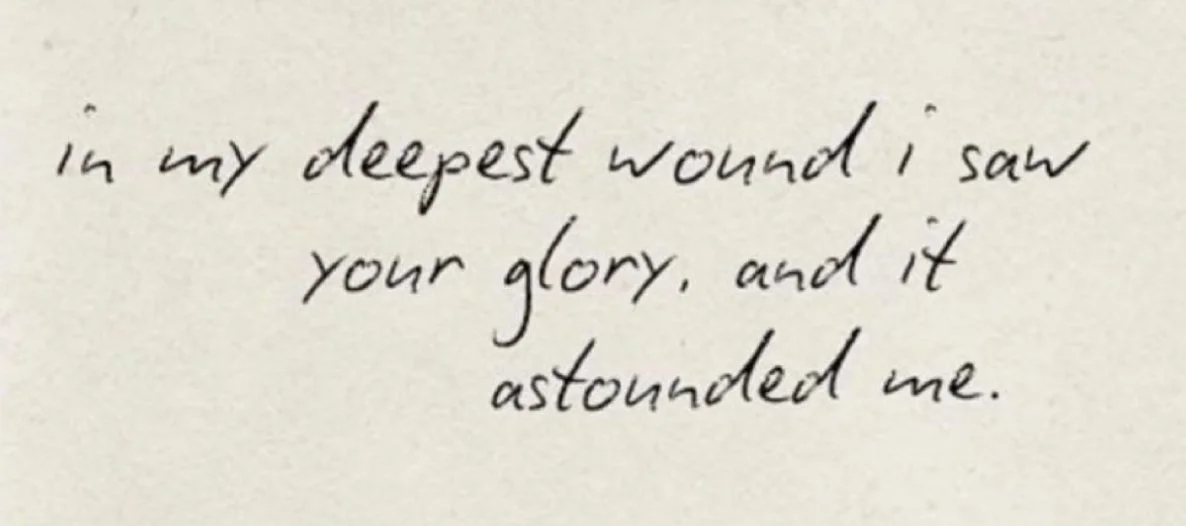 in my deepest wound i saw
your glory, and it
astounded me.